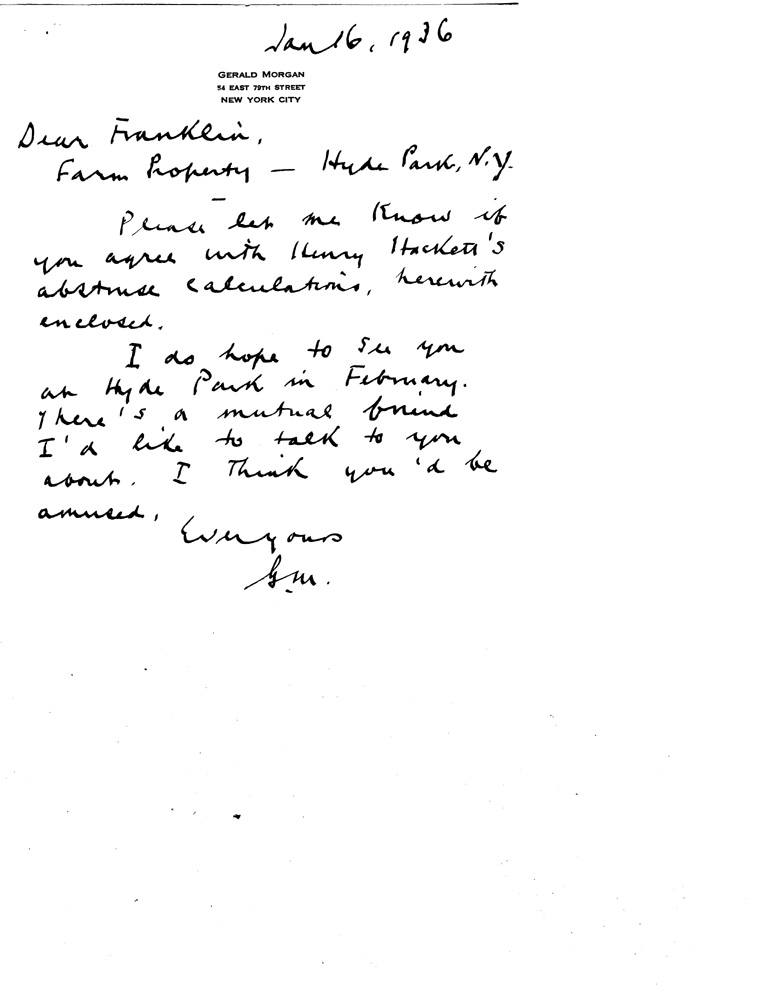 Jan 16, 1936
GERALD MORGAN
54 EAST 79TH STREET
NEW YORK CITY
Dear Franklin,
Farm Property — Hyde Park, N.Y.
Please let me know if
you agree with Henry Hackett's
abstruse calculations, herewith
enclosed.
I do hope to see you
at Hyde Park in February.
There's a mutual friend
I'd like to talk to you
about. I think you'd be
amused.
Ever yours
G.M.